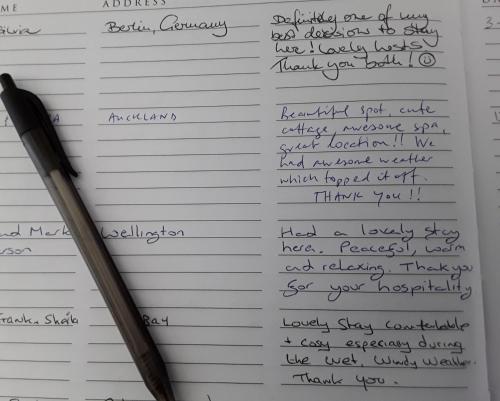 ME ADDRESS
Berlin, Germany
Definitely one of my
best decisions to stay
here! Lovely hosts
Thank you both! ☺
AUCKLAND
Beautiful spot, cute
cottage, awesome spa,
great location!! We
had awesome weather
which topped it off.
THANK YOU!!
and Mark Wellington
erson
Had a lovely stay
here. Peaceful, warm
and relaxing. Thank you
for your hospitality
Frank & Sheila Bay
Lovely Stay comfortable
+ cosy especially during
the wet, windy weather.
Thank you.